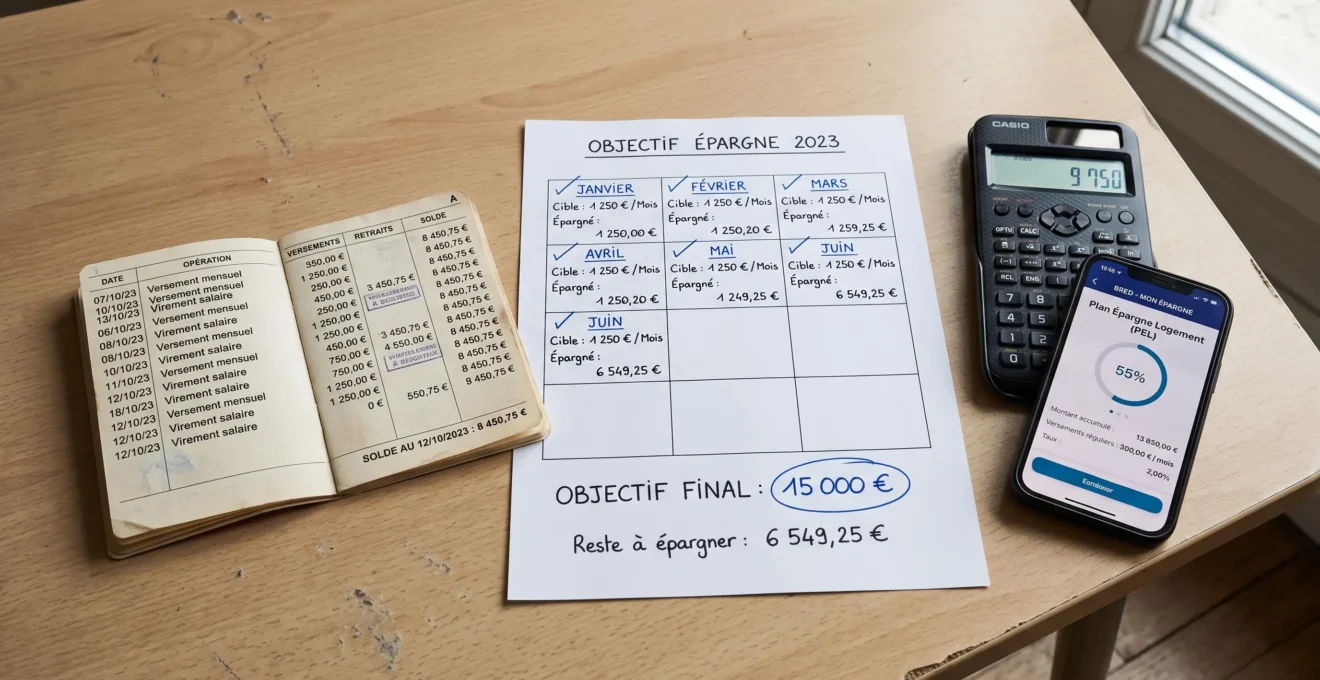 A
DATE OPÉRATION VERSEMENTS RETRAITS SOLDE
07/10/23 Versement mensuel 350,00 € 8 450,75 €
10/10/23 Versement mensuel 1 250,00 € 8 450,75 €
13/10/23 Virement salaire 250,00 € 3 450,75 € 8 450,75 €
06/10/23 Versement mensuel 450,00 € 8 450,75 €
08/10/23 Virement salaire 1 250,00 € 8 450,75 €
08/10/23 Versement mensuel 1 250,00 € 8 450,75 €
10/10/23 Virement salaire 450,00 € 3 450,75 € 8 450,75 €
11/10/23 Versement mensuel 750,00 € 4 550,00 € 8 450,75 €
12/10/23 Virement salaire 750,00 € 8 450,75 €
18/10/23 Versement mensuel 1 250,00 € 8 450,75 €
12/10/23 Virement salaire 1 250,00 € 8 450,75 €
12/10/23 0 € 550,75 €
SOLDE AU 12/10/2023 : 8 450,75 €
OBJECTIF ÉPARGNE 2023
JANVIER
Cible : 1 250 €/Mois
Épargné :
1 250,00 €
FÉVRIER
Cible : 1 250 €/Mois
Épargné :
1 250,20 €
MARS
Cible : 1 250 €/Mois
Épargné :
1 259,25 €
AVRIL
Cible : 1 250 €/Mois
Épargné :
1 250,20 €
MAI
Cible : 1 250 €/Mois
Épargné :
1 249,25 €
JUIN
Cible : 1 250 €/Mois
Épargné :
6 549,25 €
JUIN
Cible : 1 250 €/Mois
Épargné :
6 549,25 €
OBJECTIF FINAL : 15 000 €
Reste à épargner : 6 549,25 €
CASIO
9 750
OPTU CALC
RCL ENG
7 8
4 5
1 2
0
BRED - MON ÉPARGNE
Plan Épargne Logement
(PEL)
55%
Montant accumulé : 13 850,00 €
Versements réguliers : 300,00 € / mois
Taux : 2,00%